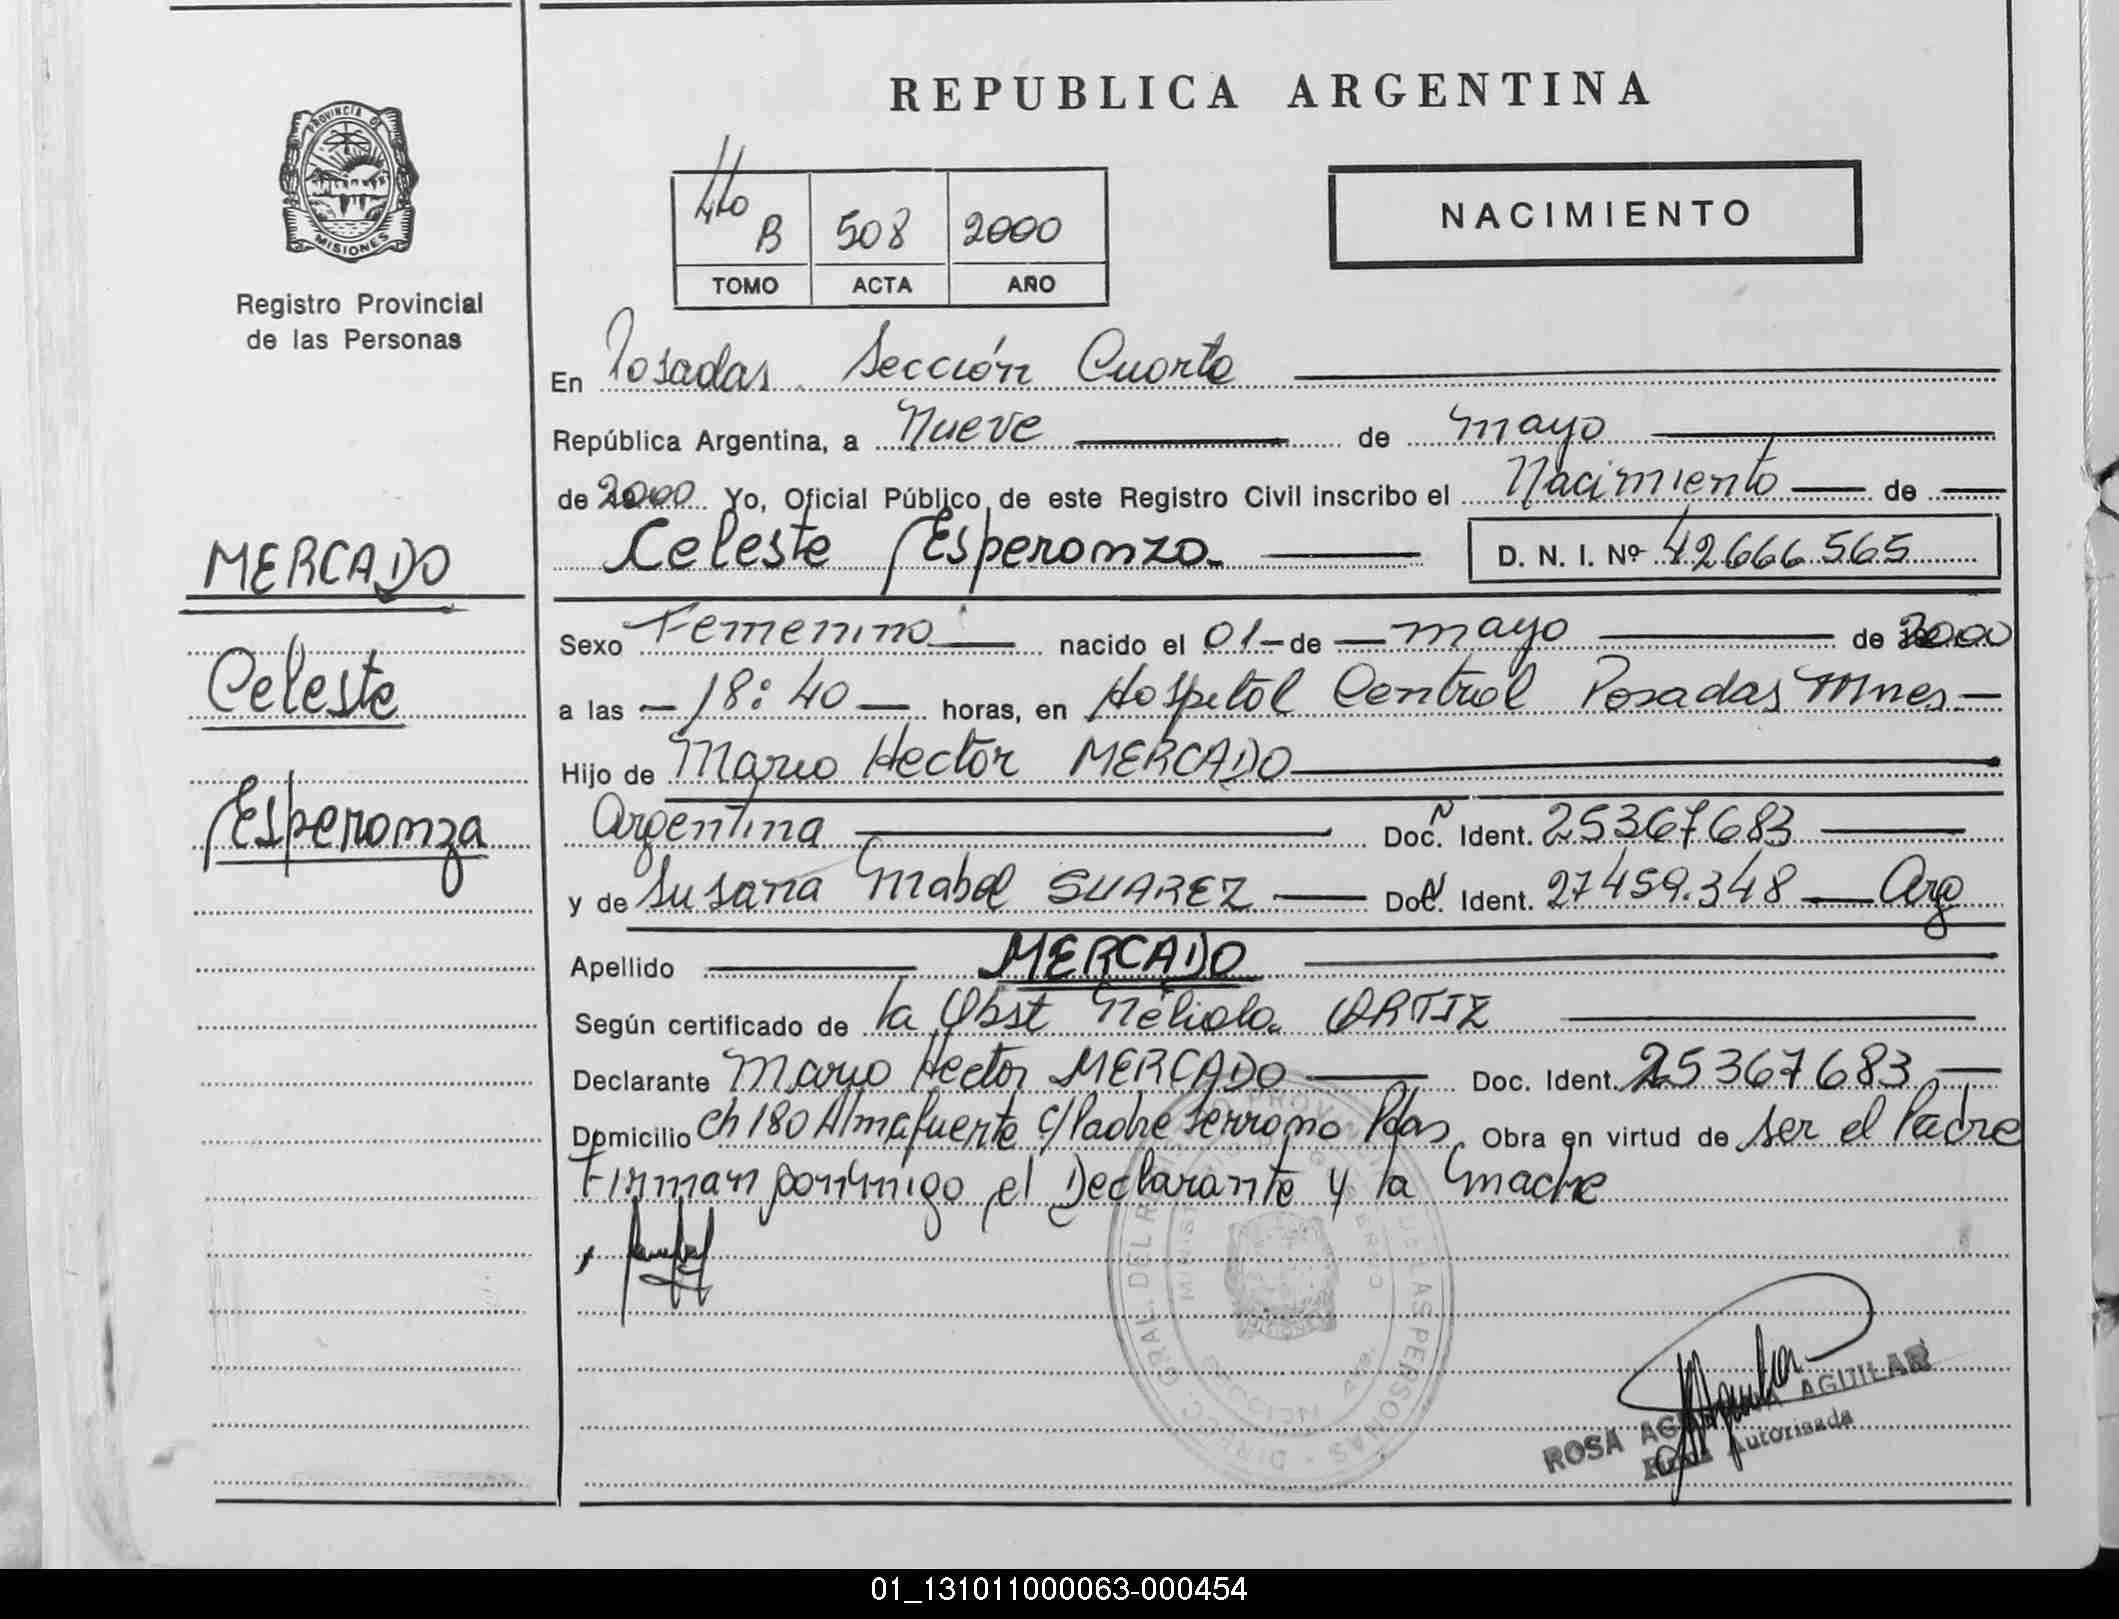 REPUBLICA ARGENTINA
PROVINCIA DE
MISIONES
Registro Provincial
de las Personas
4to B 508 2000
TOMO ACTA AÑO
NACIMIENTO
En Posadas Sección Cuarta
República Argentina, a Nueve de mayo
de 2000 Yo, Oficial Público de este Registro Civil inscribo el Nacimiento de
Celeste Esperanza D. N. I. Nº 42.666.565
MERCADO
Celeste
Esperanza
Sexo Femenino nacido el 01 de mayo de 2000
a las 18:40 horas, en Hospital Central Posadas Mnes
Hijo de Mario Hector MERCADO
Argentina Doc. Ident. 25367683
y de Susana Mabel SUAREZ Doc. Ident. 27459.348 Arg
Apellido MERCADO
Según certificado de la Obst Nélida ORTIZ
Declarante Mario Hector MERCADO Doc. Ident. 25367683
Domicilio Ch 180 Almafuerte c/Padre Serrano Pdas Obra en virtud de ser el Padre
Firman conmigo el Declarante y la madre
ROSA AGUILAR
Autorizada
01_131011000063-000454